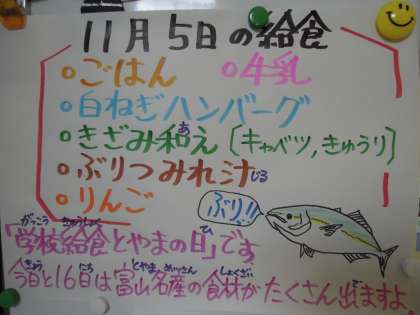 11月5日の給食
○ごはん ○牛乳
○白ねぎハンバーグ
○きざみ和え(あ)〔キャベツ,きゅうり〕
○ぶりつみれ汁(じる)
○りんご
ぶり!!
「学校給食とやまの日」です
がっこう きゅうしょく ひ
今日と16日は富山名産の食材がたくさん出ますよ
きょう にち とやま めいさん しょくざい で